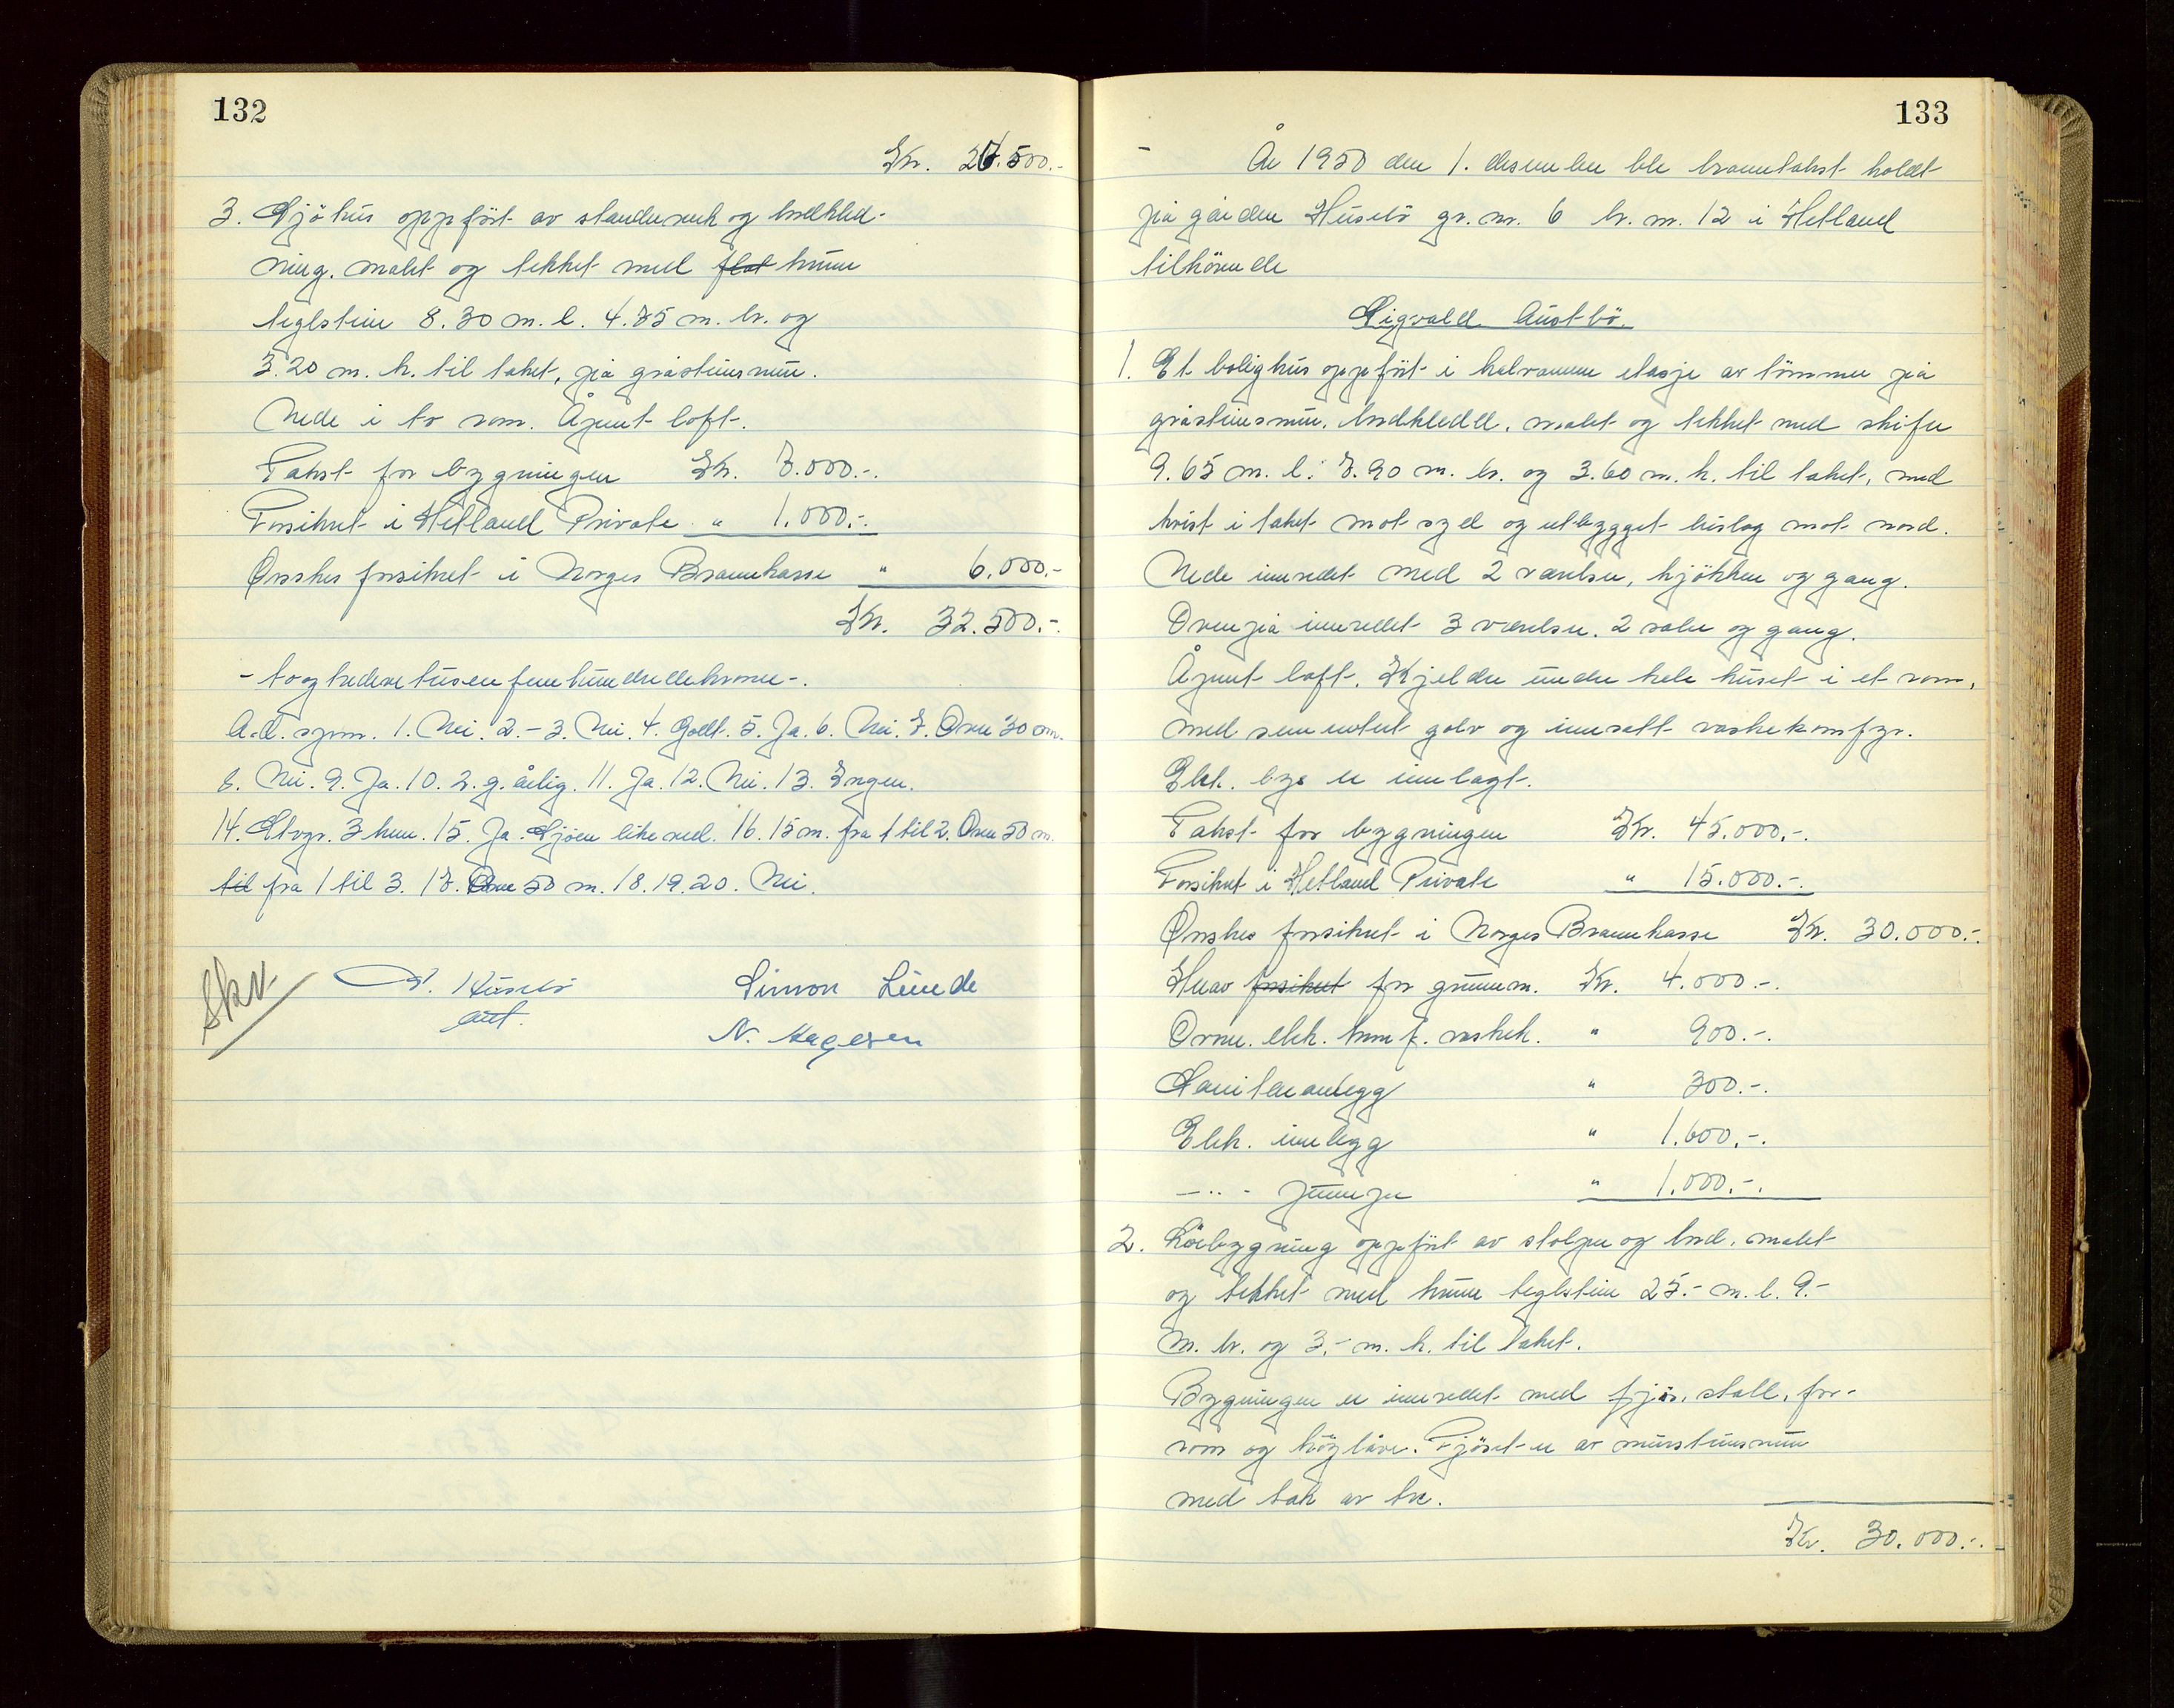 132
Kr. 26.500.-
3. Sjöhus oppfört av standerverk og bordkled-
ning. malet og tekket med flat krum
teglstein 8.30 m. l. 4.75 m. br. og
3.20 m. h. til taket, på gråsteinsmur.
Nede i to rom. Åpent loft.
Takst for bygningen Kr. 7.000.-.
Forsikret i Hetland Private " 1.000.-.
Ønskes forsikret i Norges Brannkasse " 6.000.-
Kr. 32.500.-.
- toogtredevetusenfemhundredekroner-.
A.d. spm. 1. Nei. 2.- 3. Nei. 4. Godt. 5. Ja. 6. Nei. 7. Over 30 cm.
8. Nei. 9. Ja. 10. 2. g. årlig. 11. Ja. 12. Nei. 13. Ingen.
14. Stvgr. 3 km. 15. Ja. Sjöen like ved. 16. 15 m. fra 1 til 2. Over 50 m.
til fra 1 til 3. 17. Over 50 m. 18. 19. 20. Nei.
Skr.
Husebö Simon Lunde
N. Hagesen
133
År 1950 den 1. desember ble branntakst holdt
på gården Husebö gr. nr. 6 br. nr. 12 i Hetland
tilhörende
Sigvald Austbö.
1. Et bolighus oppfört i halvannen etasje av tömmer på
gråsteinsmur. bordkledd. malet og tekket med skifer
9.65 m. l. 7.90 m. br. og 3.60 m. h. til taket, med
kvist i taket mot syd og utbygget bislag mot nord.
Nede innredet med 2 værelser, kjökken og gang.
Ovenpå innredet 3 værelser. 2 boder og gang.
Åpent loft. Kjelder under hele huset i et rom,
med sementert golv og innsatt vaskekomfyr.
Elek. lys er innlagt.
Takst for bygningen Kr. 45.000.-.
Forsikret i Hetland Private " 15.000.-.
Ønskes forsikret i Norges Brannkasse Kr. 30.000.-.
Herav forsikret for grunnm. Kr. 4.000.-.
Ovner. elek. komf. vaskek. " 900.-.
Sanitæranlegg " 300.-.
Elek. innlegg " 1.600.-.
- " - pumpe " 1.000.-.
2. Löebygning oppfört av stolper og bord. malet
og tekket med krum teglstein 25.- m. l. 9.-
m. br. og 3.- m. h. til taket.
Bygningen er innredet med fjös, stall, for-
rom og höylåve. Fjöset er av mursteinsmur
med tak av tre.
Kr. 30.000.-.